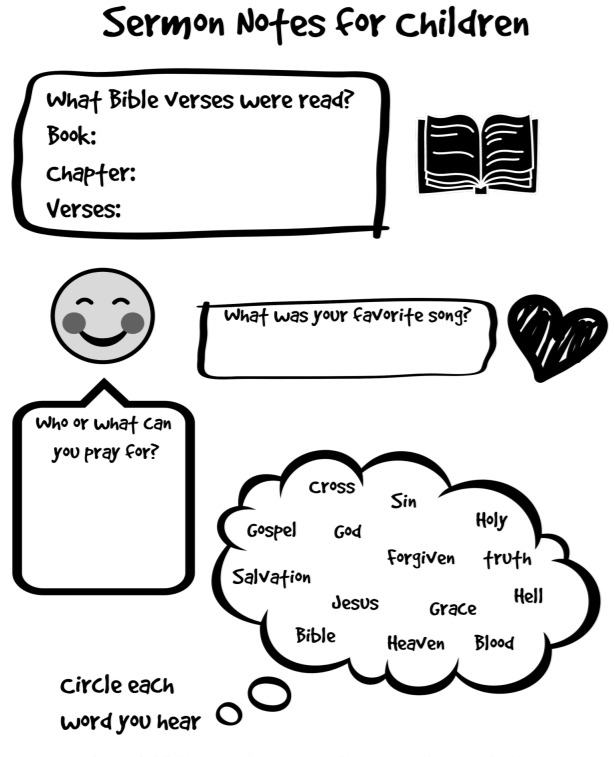 Sermon Notes for Children
What Bible Verses were read?
Book:
Chapter:
Verses:
What was your favorite song?
Who or what can
you pray for?
Cross
Sin
Holy
Gospel
God
Forgiven
truth
Salvation
Jesus
Grace
Hell
Bible
Heaven
Blood
Circle each
word you hear